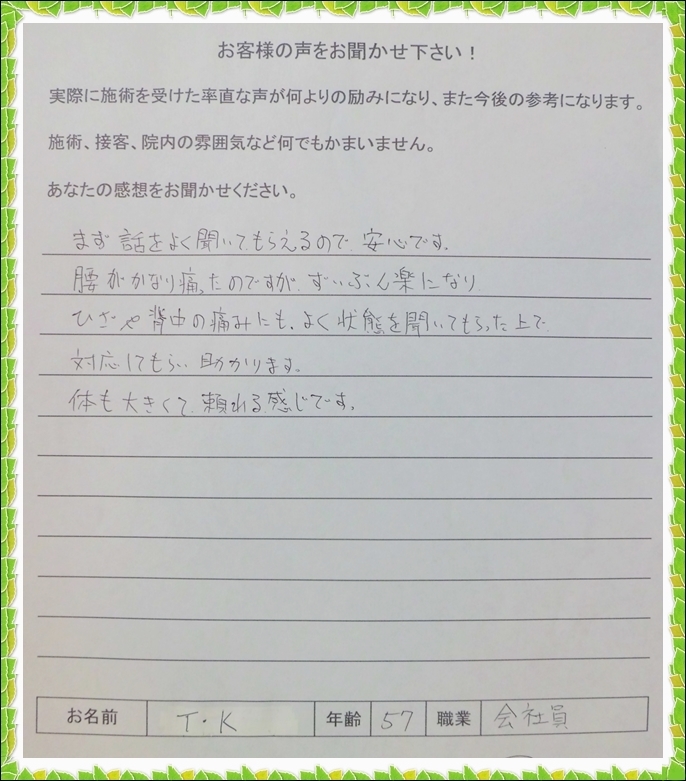 お客様の声をお聞かせ下さい！
実際に施術を受けた率直な声が何よりの励みになり、また今後の参考になります。
施術、接客、院内の雰囲気など何でもかまいません。
あなたの感想をお聞かせください。
まず話をよく聞いてもらえるので安心です。
腰がかなり痛ったのですが、ずいぶん楽になり
ひざや背中の痛みにも、よく状態を聞いてもらった上で
対応してもらい助かります。
体も大きくて、頼れる感じです。
お名前 T・K 年齢 57 職業 会社員